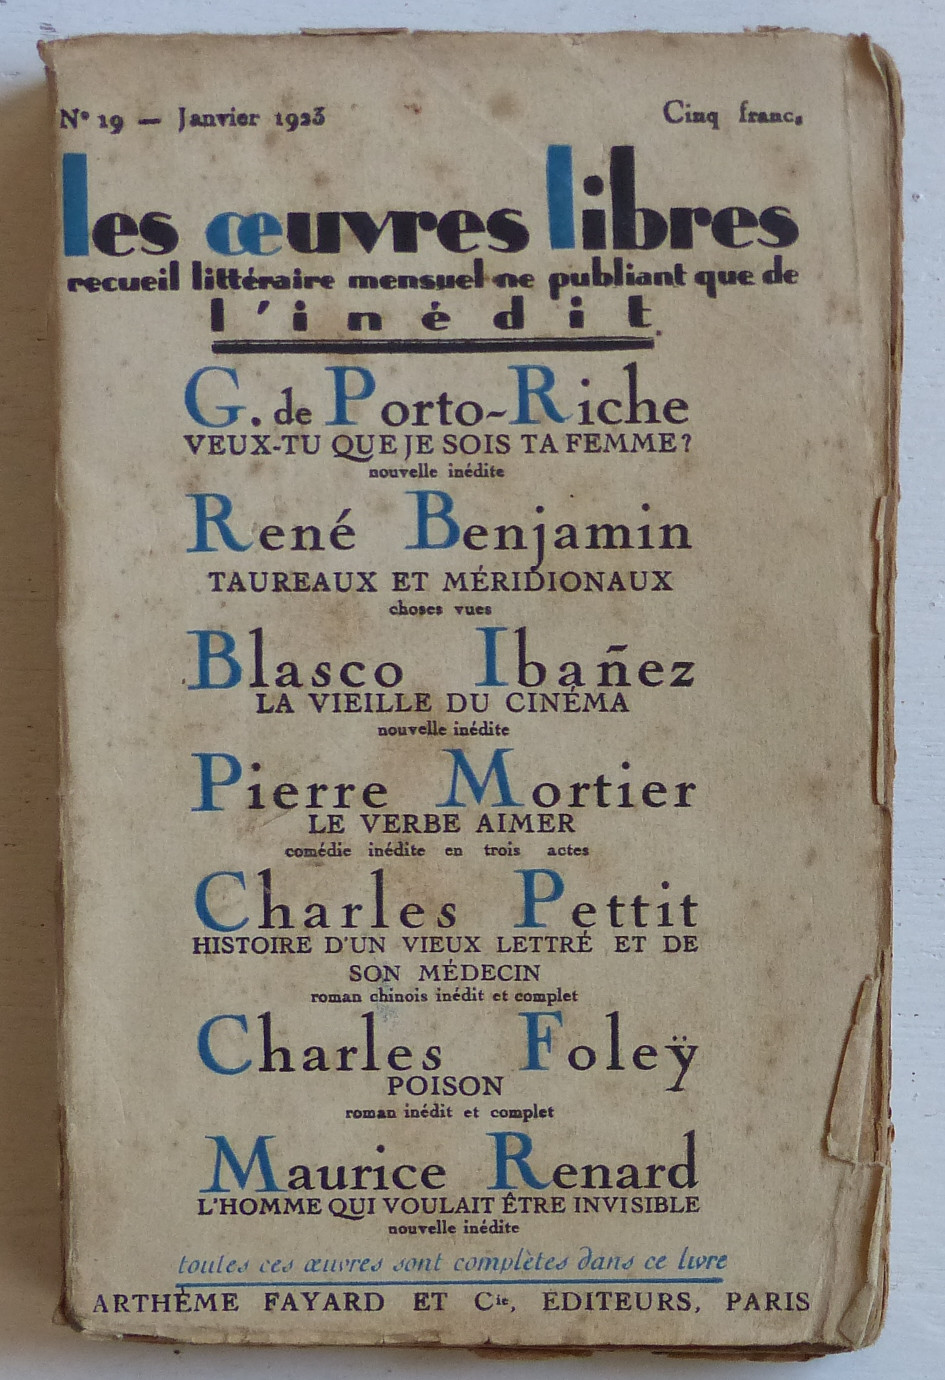 Nº 19 — Janvier 1923 Cinq francs
les œuvres libres
recueil littéraire mensuel ne publiant que de
l'inédit
G. de Porto-Riche
VEUX-TU QUE JE SOIS TA FEMME?
nouvelle inédite
René Benjamin
TAUREAUX ET MÉRIDIONAUX
choses vues
Blasco Ibañez
LA VIEILLE DU CINÉMA
nouvelle inédite
Pierre Mortier
LE VERBE AIMER
comédie inédite en trois actes
Charles Pettit
HISTOIRE D'UN VIEUX LETTRÉ ET DE
SON MÉDECIN
roman chinois inédit et complet
Charles Foleÿ
POISON
roman inédit et complet
Maurice Renard
L'HOMME QUI VOULAIT ÊTRE INVISIBLE
nouvelle inédite
toutes ces œuvres sont complètes dans ce livre
ARTHÈME FAYARD ET Cie, EDITEURS, PARIS